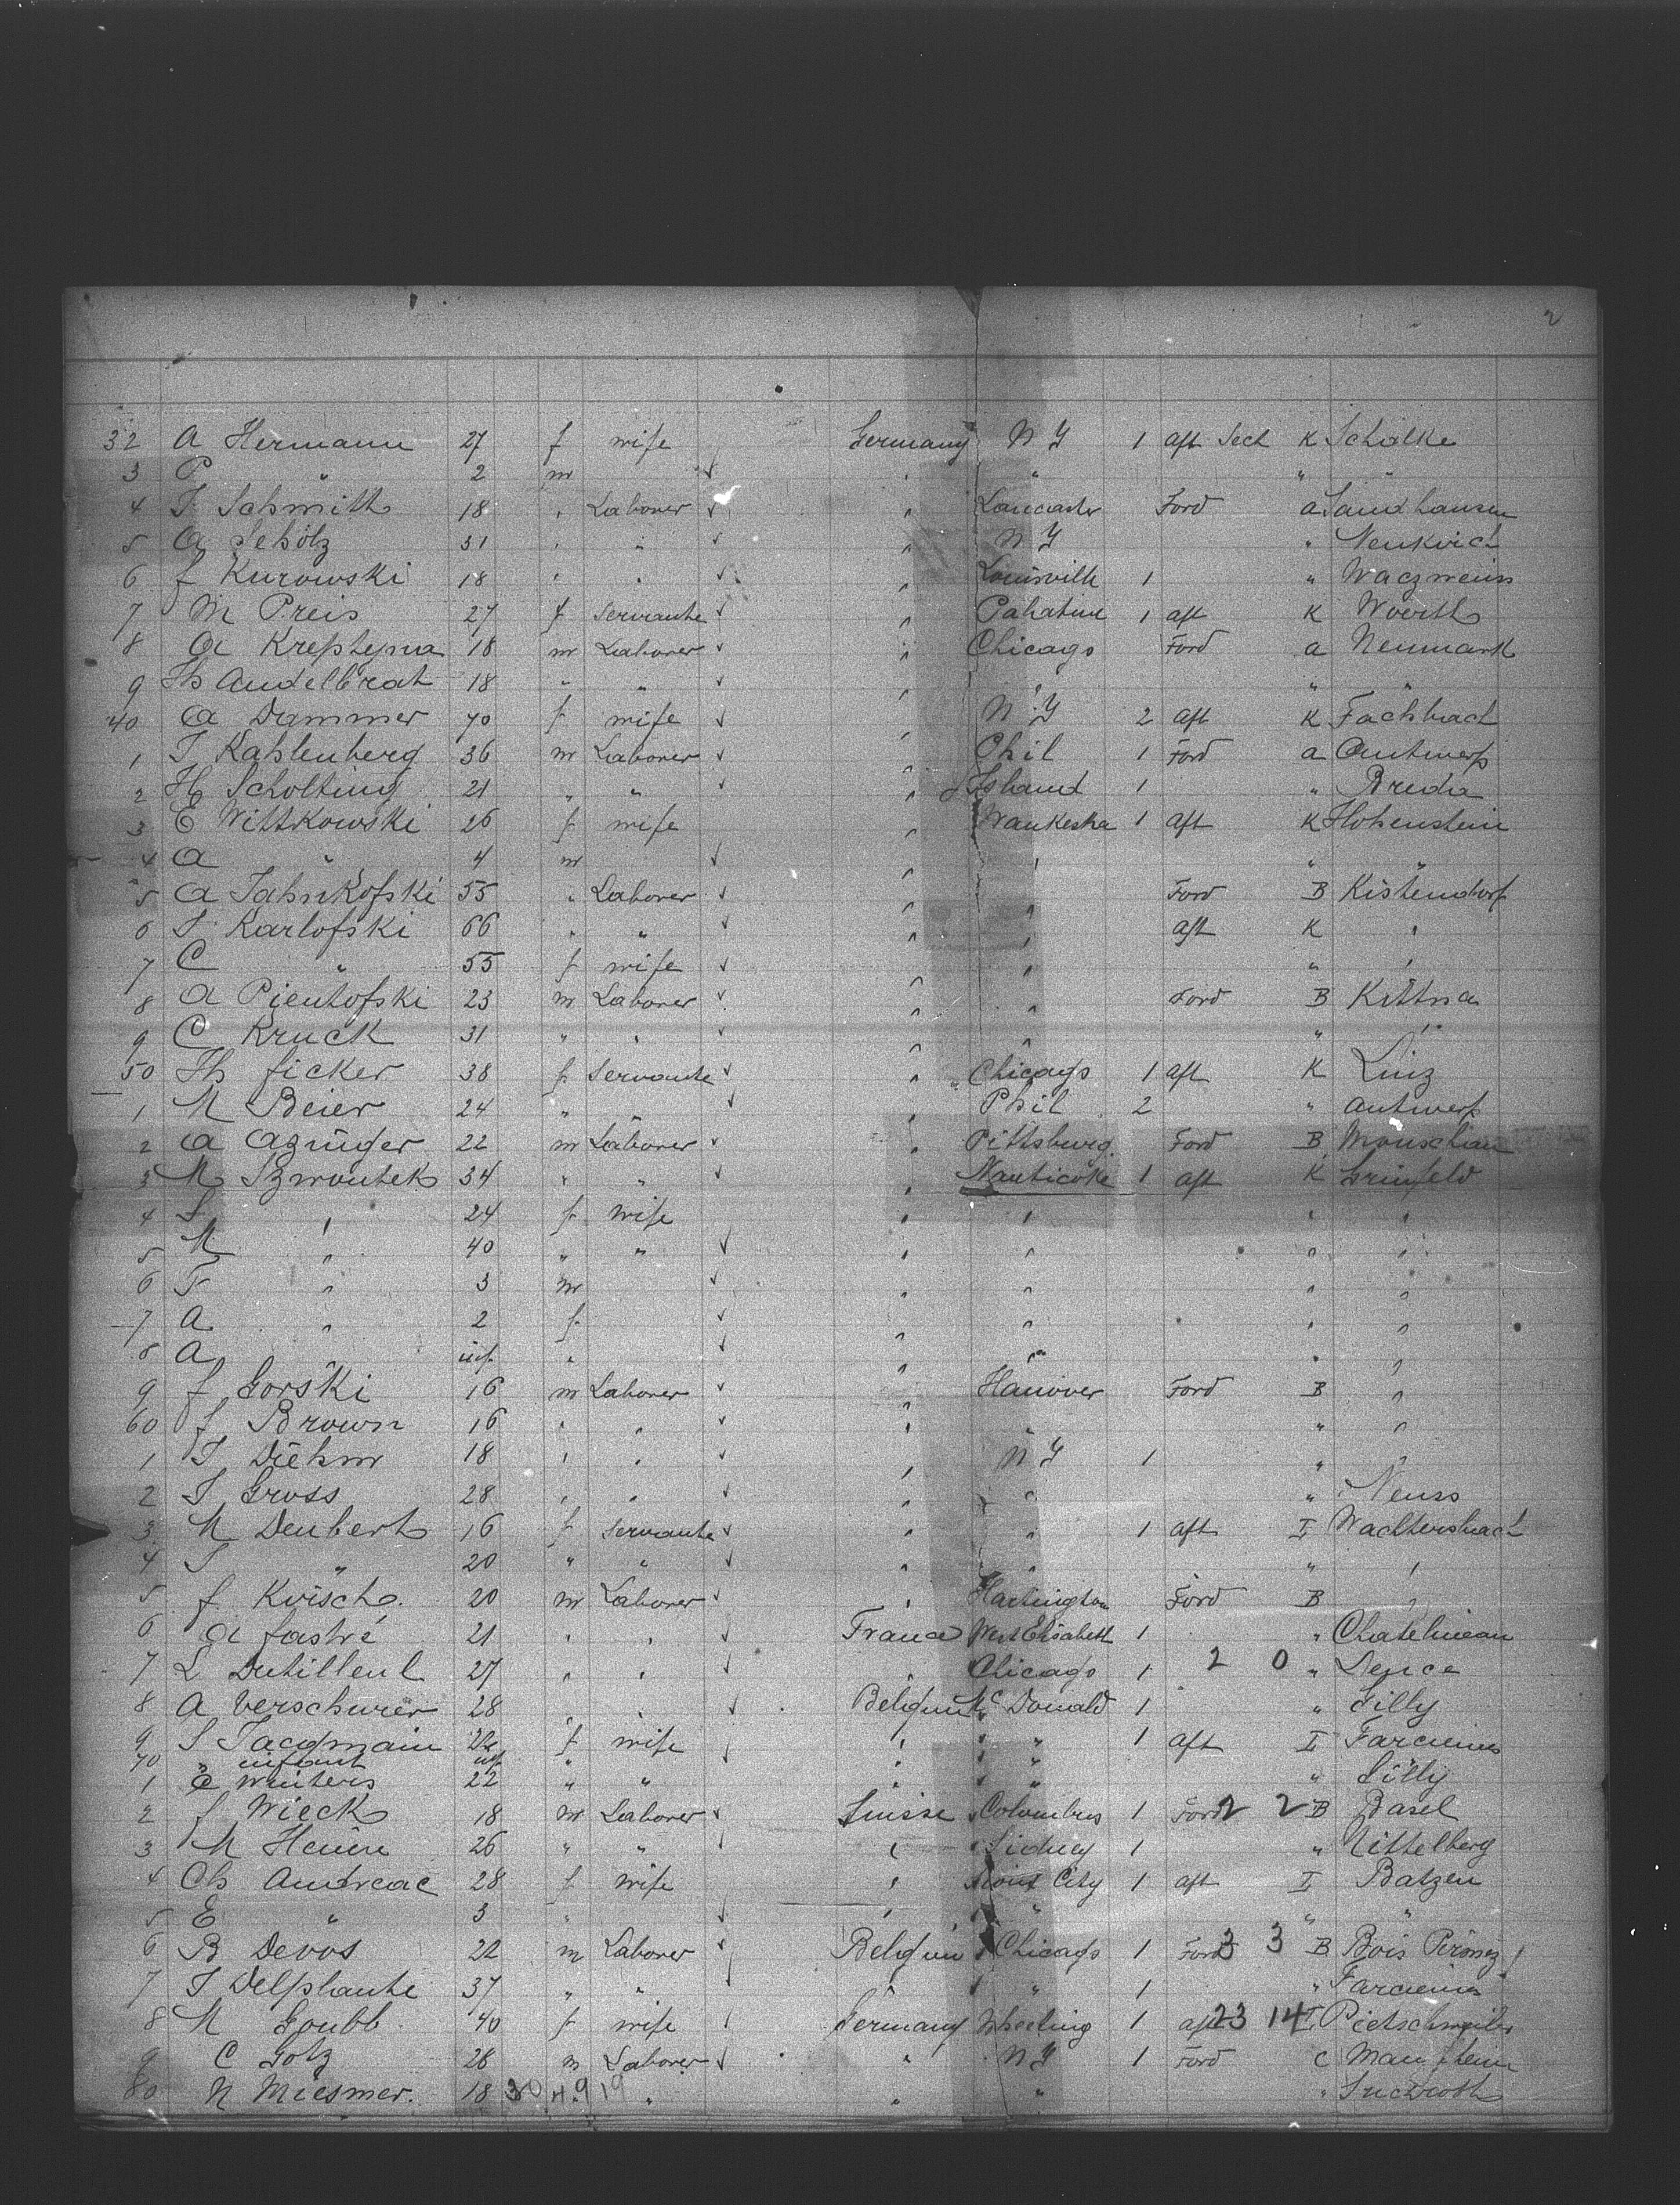 2
32 A Hermann 27 f wife Germany N Y 1 aft Sect K Schalke
3 P " 2 m " " " "
4 J Schmith 18 " Laborer " Lancaster Ford a Sandhausen
5 A Scholz 31 " " " N Y " Neukirch
6 f Kurowski 18 " " " Louisville 1 "
7 M Preis 27 f servante " Palatine 1 aft K Woerth
8 A 18 m Laborer " Chicago Ford a Neumark
9 Th Andelbrat 18 " " " " " "
40 A Dammer 70 f wife " N Y 2 aft K Fachbach
1 J Kahlenberg 36 m Laborer " Phil 1 Ford a Antwerp
2 H Scholting 21 " " " Island 1 " Breda
3 E Wittkowski 26 f wife " Waukesha 1 aft K Hohenstein
4 A " 4 m " " " "
5 A Jahnkofski 55 " Laborer " " Ford B Kistendorf
6 J Karlofski 66 " " " " aft K "
7 C " 55 f wife " " " "
8 A Pientofski 23 m Laborer " " Ford B Kittna
9 C Kruck 31 " " " " " "
50 Th ficker 38 f Servante " Chicago 1 aft K Linz
1 M Beier 24 " " " Phil 2 " Antwerp
2 A 22 m Laborer " Pittsburg Ford B
3 M Szwontek 34 " " " Nanticoke 1 aft K Grinfeld
4 S " 24 f wife " " " "
5 M " 40 " " " " " "
6 F " 3 m " " " "
7 A " 2 f " " " "
8 A " inf " " " " "
9 f Gorski 16 m Laborer " Hanover Ford B "
60 f Brown 16 " " " " "
1 J Diehm 18 " " " N Y 1 " "
2 J Gross 28 " " " " " Neuss
3 M Deubert 16 f servante " " 1 aft I Wachtersbach
4 J " 20 " " " " " "
5 f Krisch 20 m Laborer " Hartington Ford B "
6 A fastré 21 " " France West Elisabeth 1 " Chatelineau
7 L Dutilleul 27 " " " Chicago 1 2 0 "
8 A Verschurer 28 " " Belgium Mc Donald 1 " Gilly
9 S Jacqmain f wife " " " 1 aft I Farciennes
70 " infant inf "
1 C Winters 22 " " " " " " Gilly
2 f Wieck 18 m Laborer Suisse Columbus 1 Ford 2 2 B Basel
3 M 26 " " " Sidney 1 " Nittelberg
4 Ch Andreae 28 f wife " City 1 aft I Batzen
5 E " 3 " " " " "
6 B Devos 22 m Laborer Belgium Chicago 1 Ford 3 3 B Bois
7 J Delplanke 37 " " " " 1 " Farciennes
8 M Goubb 40 f wife Germany Wheeling 1 aft 23 14 I
9 C Gotz 28 m Laborer " N Y 1 Ford C Manheim
80 N Miesmer. 18 30 49 19 " " " "